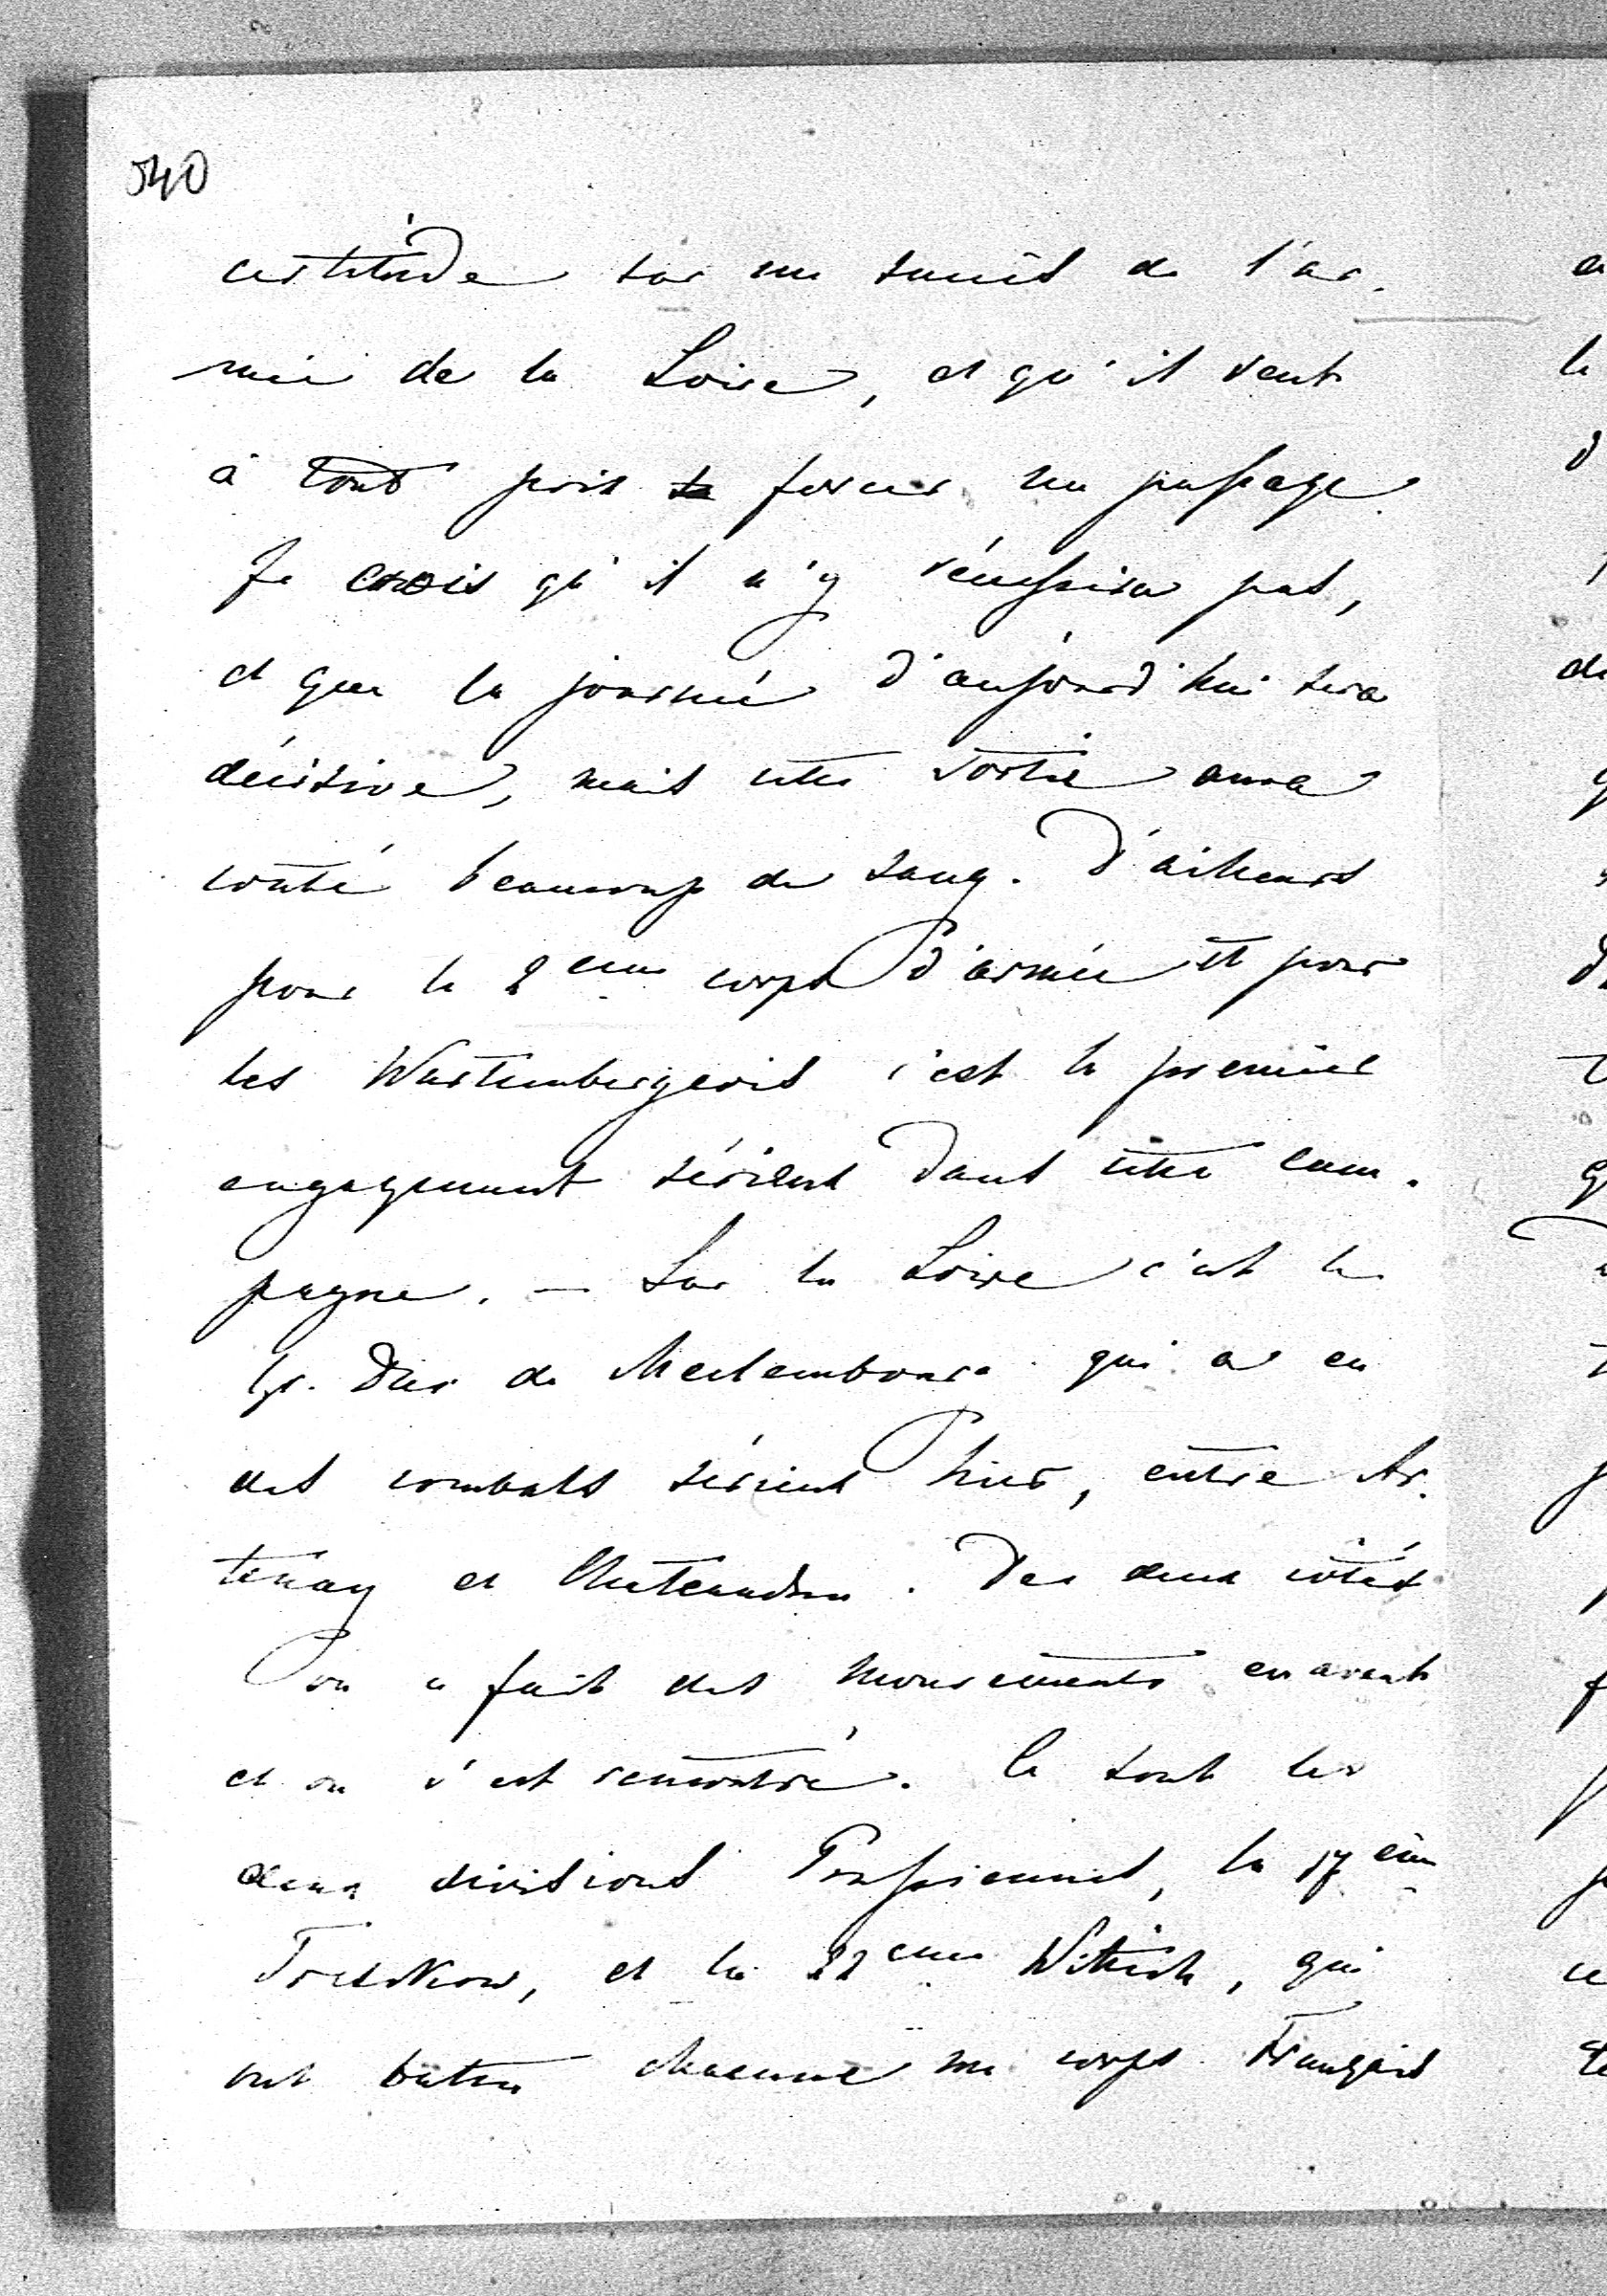 540
certitude sur un succès de l'ar-
mée de la Loire, et qu'il veut
à tout prix forcer un passage.
Je crois qu'il n'y réussira pas,
et que la journée d'aujourd'hui sera
décisive, mais cette sortie aura
couté beaucoup de sang. D'ailleurs
pour le 2eme corps d'armée et pour
les Wurtembergeois c'est le premier
engagement sérieux dans cette cam-
pagne. — Sur la Loire c'est le
Gr. Duc de Meclembourg qui a eu
des combats sérieux hier, entre Ar-
tenay et Chateaudun. Des deux côtés
on a fait des mouvements en avant
et on s'est rencontré. Ce sont les
deux divisions Prussiennes, la 17eme
Treskow, et la 22eme Wittich, qui
ont battu chacune un corps Français